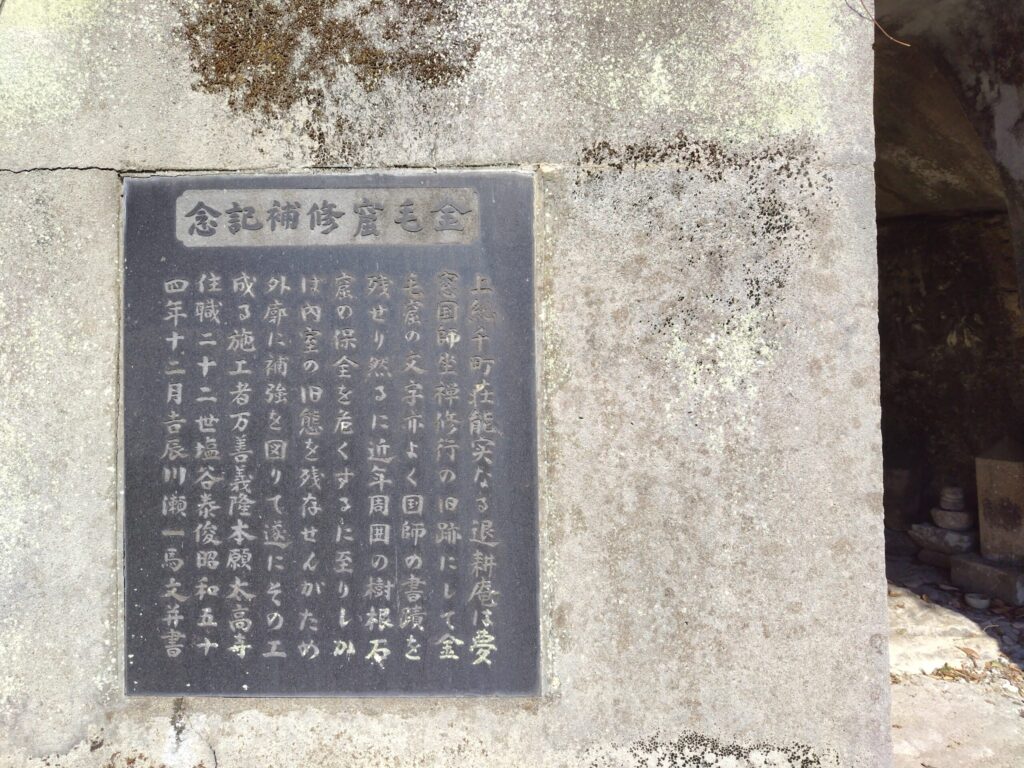 金毛窟修補記念
上総千町荘能実なる退耕庵は夢
窓国師坐禅修行の旧跡にして金
毛窟の文字亦よく国師の書蹟を
残せり然るに近年周囲の樹根石
窟の保全を危くするに至りしか
は内室の旧態を残存せんがため
外廓に補強を図りて遂にその工
成る施工者万善義隆本願太高寺
住職二十二世塩谷泰俊昭和五十
四年十二月吉辰川瀬一馬文并書